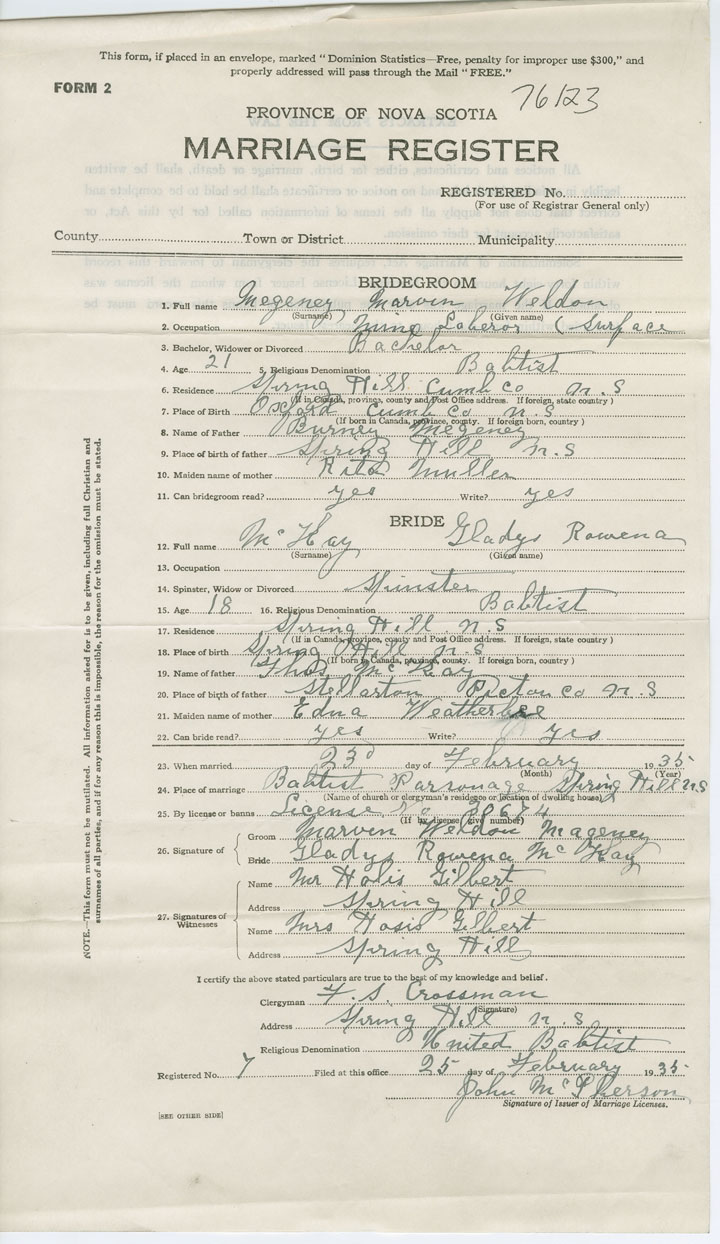 This form, if placed in an envelope, marked "Dominion Statistics—Free, penalty for improper use $300," and
properly addressed will pass through the Mail "FREE."
FORM 2
76123
PROVINCE OF NOVA SCOTIA
MARRIAGE REGISTER
REGISTERED No.
(For use of Registrar General only)
County Town or District Municipality
BRIDEGROOM
1. Full name Megeney Marven Weldon
(Surname) (Given name)
2. Occupation Mine Laberor (Surface
3. Bachelor, Widower or Divorced Bachelor
4. Age 21 5. Religious Denomination Babtist
6. Residence Spring Hill Cumb Co N.S
(If in Canada, province, county and Post Office address. If foreign, state country)
7. Place of Birth Oxford Cumb Co N.S
(If born in Canada, province, county. If foreign born, country)
8. Name of Father Burney Megeney
9. Place of birth of father Spring Hill N.S
10. Maiden name of mother Rita Muller
11. Can bridegroom read? yes Write? yes
BRIDE
12. Full name McKay Gladys Rowena
(Surname) (Given name)
13. Occupation
14. Spinster, Widow or Divorced Spinster
15. Age 18 16. Religious Denomination Babtist
17. Residence Spring Hill N.S
(If in Canada, province, county and Post Office address. If foreign, state country)
18. Place of birth Spring Hill N.S
(If born in Canada, province, county. If foreign born, country)
19. Name of father Thos McKay
20. Place of birth of father Stellarton Pictou Co N.S
21. Maiden name of mother Edna Weatherbee
22. Can bride read? yes Write? yes
23. When married 23d day of February 1935
(Month) (Year)
24. Place of marriage Babtist Parsonage Spring Hill N.S
(Name of church or clergyman's residence or location of dwelling house)
25. By license or banns License No
(If by license, give number)
26. Signature of
Groom Marven Weldon Mageney
Bride Gladys Rowena McKay
27. Signatures of Witnesses
Name Mr Holis Gilbert
Address Spring Hill
Name Mrs Hosis Gilbert
Address Spring Hill
I certify the above stated particulars are true to the best of my knowledge and belief.
Clergyman F. S. Crossman
(Signature)
Address Spring Hill N.S
Religious Denomination United Babtist
Registered No. 7 Filed at this office 25 day of February 1935
John McPherson
Signature of Issuer of Marriage Licenses.
[SEE OTHER SIDE]
NOTE.—This form must not be mutilated. All information asked for is to be given, including full Christian and
surnames of all parties, and if for any reason this is impossible, the reason for the omission must be stated.